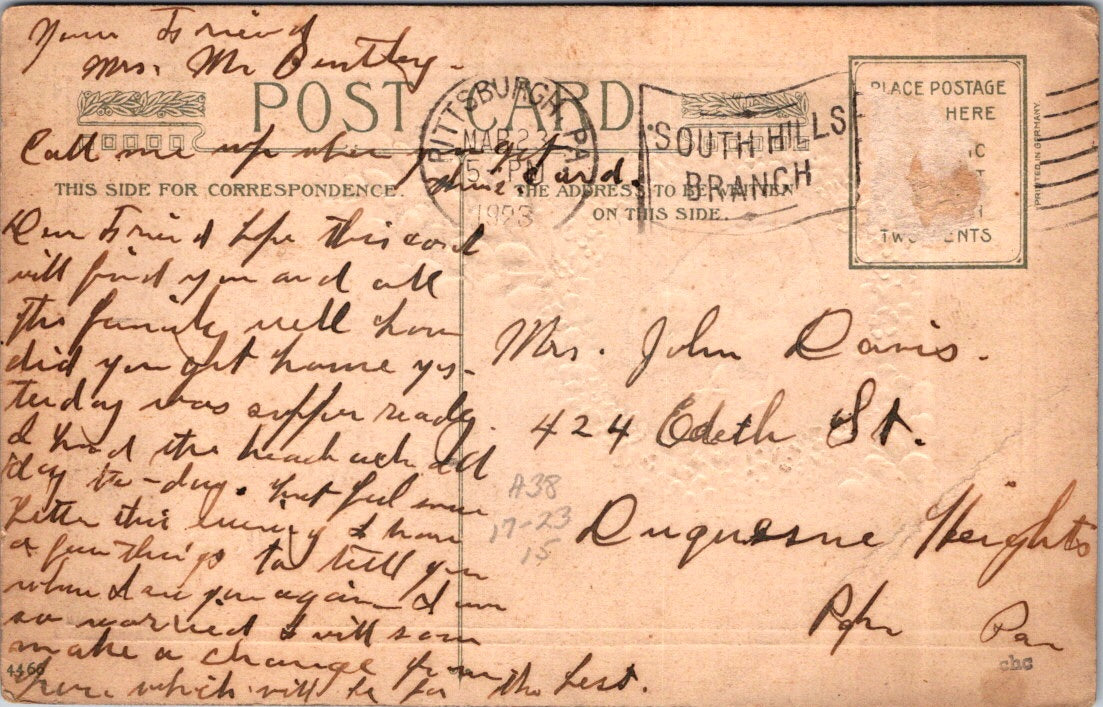 Your Friend
Mrs. Mc Bentley.
POST CARD
Call me up when you get
this Card.
PITTSBURGH, PA
MAR 22
5 PM
1923
SOUTH HILLS
BRANCH
PLACE POSTAGE
HERE
TWO CENTS
PRINTED IN GERMANY.
THIS SIDE FOR CORRESPONDENCE.
THE ADDRESS TO BE WRITTEN
ON THIS SIDE.
Dear Friend hope this card
will find you and all
the family well how
did you get home yes-
terday was supper ready.
I had the head ache all
day to-day. but feel some
better this evening I have
a few things to tell you
when I see you again I am
so worried I will soon
make a change from
here which will be for the best.
4466
Mrs. John Davis.
424 Edeth St.
Duquesne Heights
Pgh Pa
A38
17-23
15
cbc